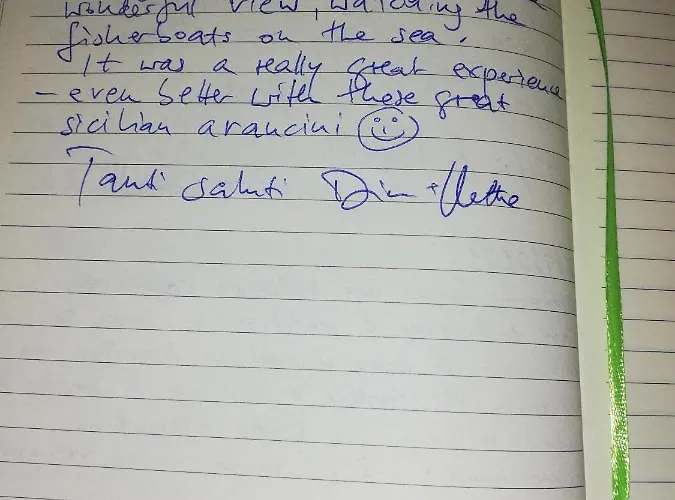 wonderful view, watching the
fisherboats on the sea.
It was a really great experience
- even better with these great
sicilian arancini
Tanti saluti